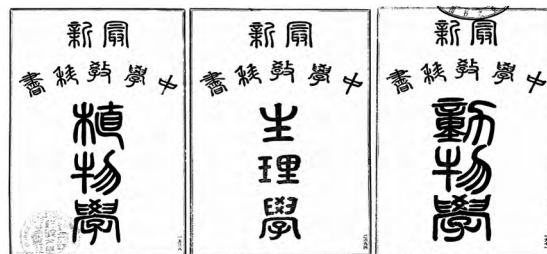 最新
中學教科書
植物學
最新
中學教科書
生理學
最新
中學教科書
動物學